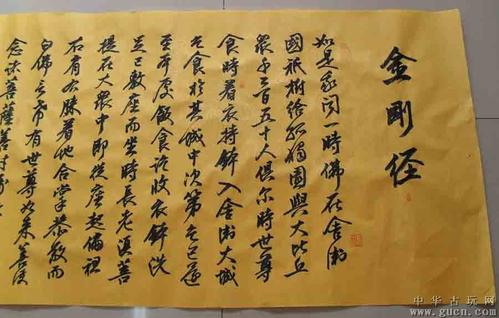 金剛经
如是我闻一時佛在舍衛
國祇樹给孤獨園與大比丘
眾千二百五十人俱尔時世尊
食時着衣持鉢入舍衛大城
乞食於其城中次第乞已還
至本處飯食訖收衣鉢洗
足已敷座而坐時長老湏菩
提在大眾中即從座起偏袒
右肩右膝着地合掌恭敬而
白佛言希有世尊如来善護
念诸菩薩善付
中华古玩网
www.gucn.com